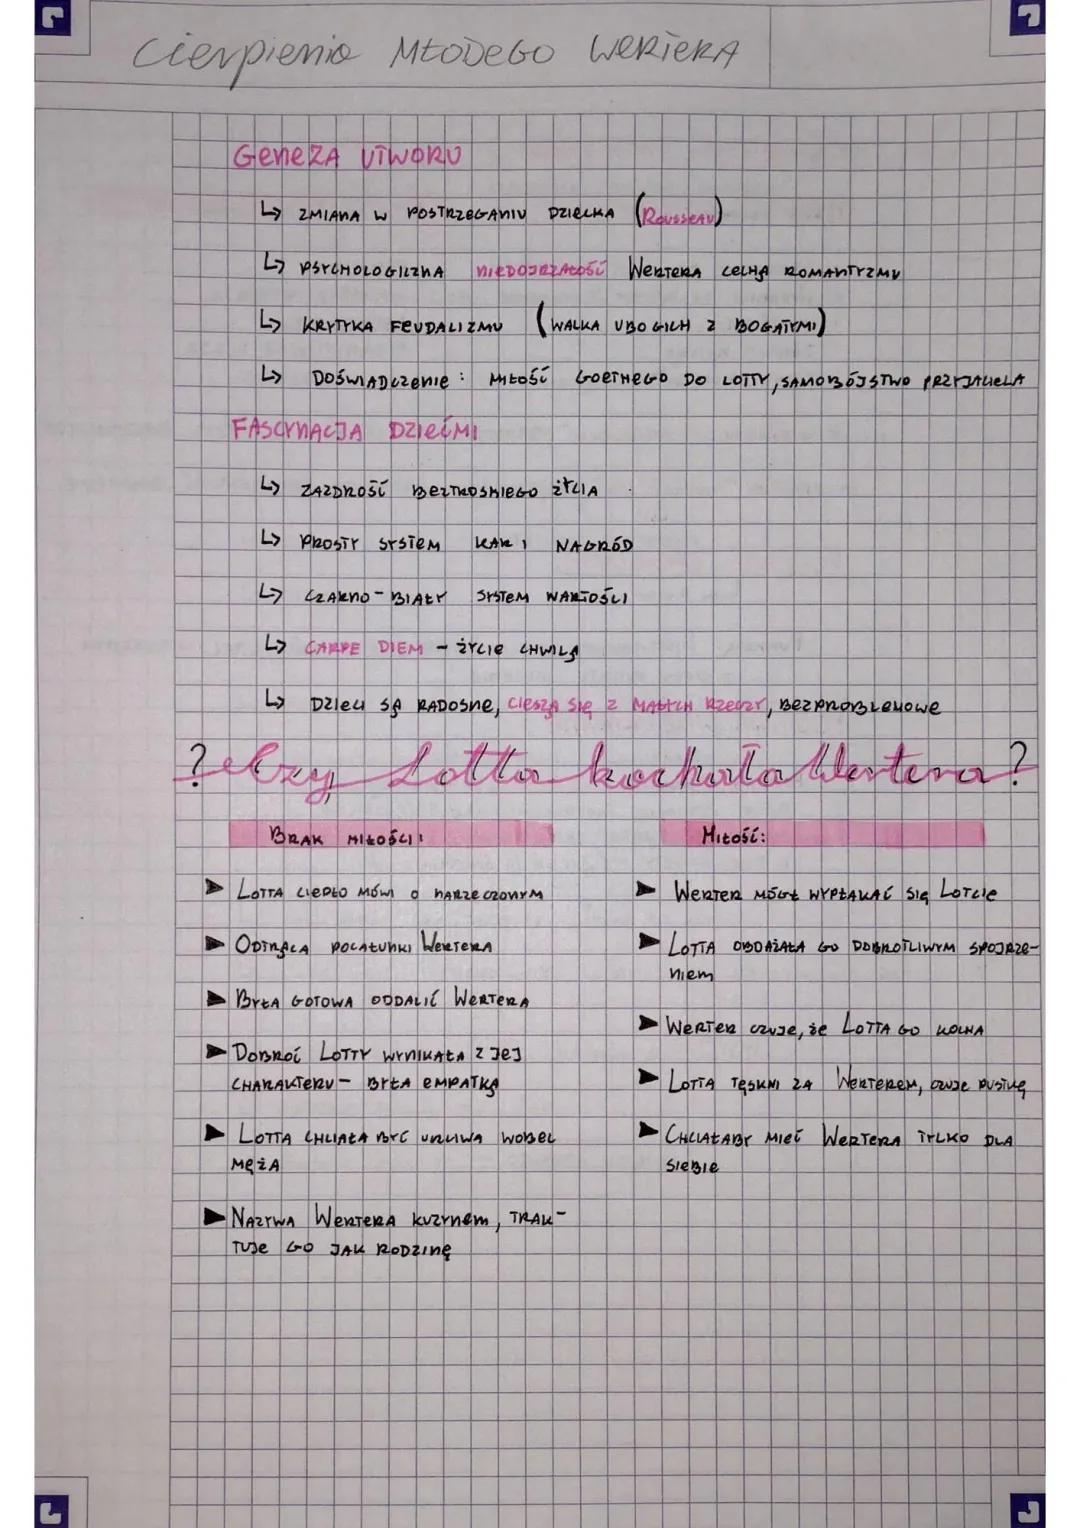 Cierpienia MŁODEGO WERTERA
GENEZA UTWORU
↳ ZMIANA W POSTRZEGANIU DZIECKA (ROUSSEAU)
↳ PSYCHOLOGICZNA NIEDOJRZAŁOŚĆ WERTERA CECHĄ ROMANTYZMU
↳ KRYTYKA FEUDALIZMU (WALKA UBOGICH Z BOGATYMI)
↳ DOŚWIADCZENIE: MIŁOŚĆ GOETHEGO DO LOTTY, SAMOBÓJSTWO PRZYJACIELA
FASCYNACJA DZIEĆMI
↳ ZAZDROŚĆ BEZTROSKIEGO ŻYCIA
↳ PROSTY SYSTEM KAR I NAGRÓD
↳ CZARNO-BIAŁY SYSTEM WARTOŚCI
↳ CARPE DIEM - ŻYCIE CHWILĄ
↳ DZIECI SĄ RADOSNE, CIESZĄ SIĘ Z MAŁYCH RZECZY, BEZPROBLEMOWE
? Czy Lotta kochała Wertera ?
BRAK MIŁOŚCI:
► LOTTA CIEPŁO MÓWI O NARZECZONYM
► ODTRĄCA POCAŁUNKI WERTERA
► BYŁA GOTOWA ODDALIĆ WERTERA
► DOBROĆ LOTTY WYNIKAŁA Z JEJ
CHARAKTERU - BYŁA EMPATKĄ
► LOTTA CHCIAŁA BYĆ UCZCIWA WOBEC
MĘŻA
► NAZYWA WERTERA KUZYNEM, TRAK-
TUJE GO JAK RODZINĘ
MIŁOŚĆ:
► WERTER MÓGŁ WYPŁAKAĆ SIĘ LOTCIE
► LOTTA OBDAŻAŁA GO DOBROTLIWYM SPOJRZE-
NIEM
► WERTER CZUJE, ŻE LOTTA GO KOCHA
► LOTTA TĘSKNI ZA WERTEREM, CZUJE PUSTKĘ
► CHCIAŁABY MIEĆ WERTERA TYLKO DLA
SIEBIE